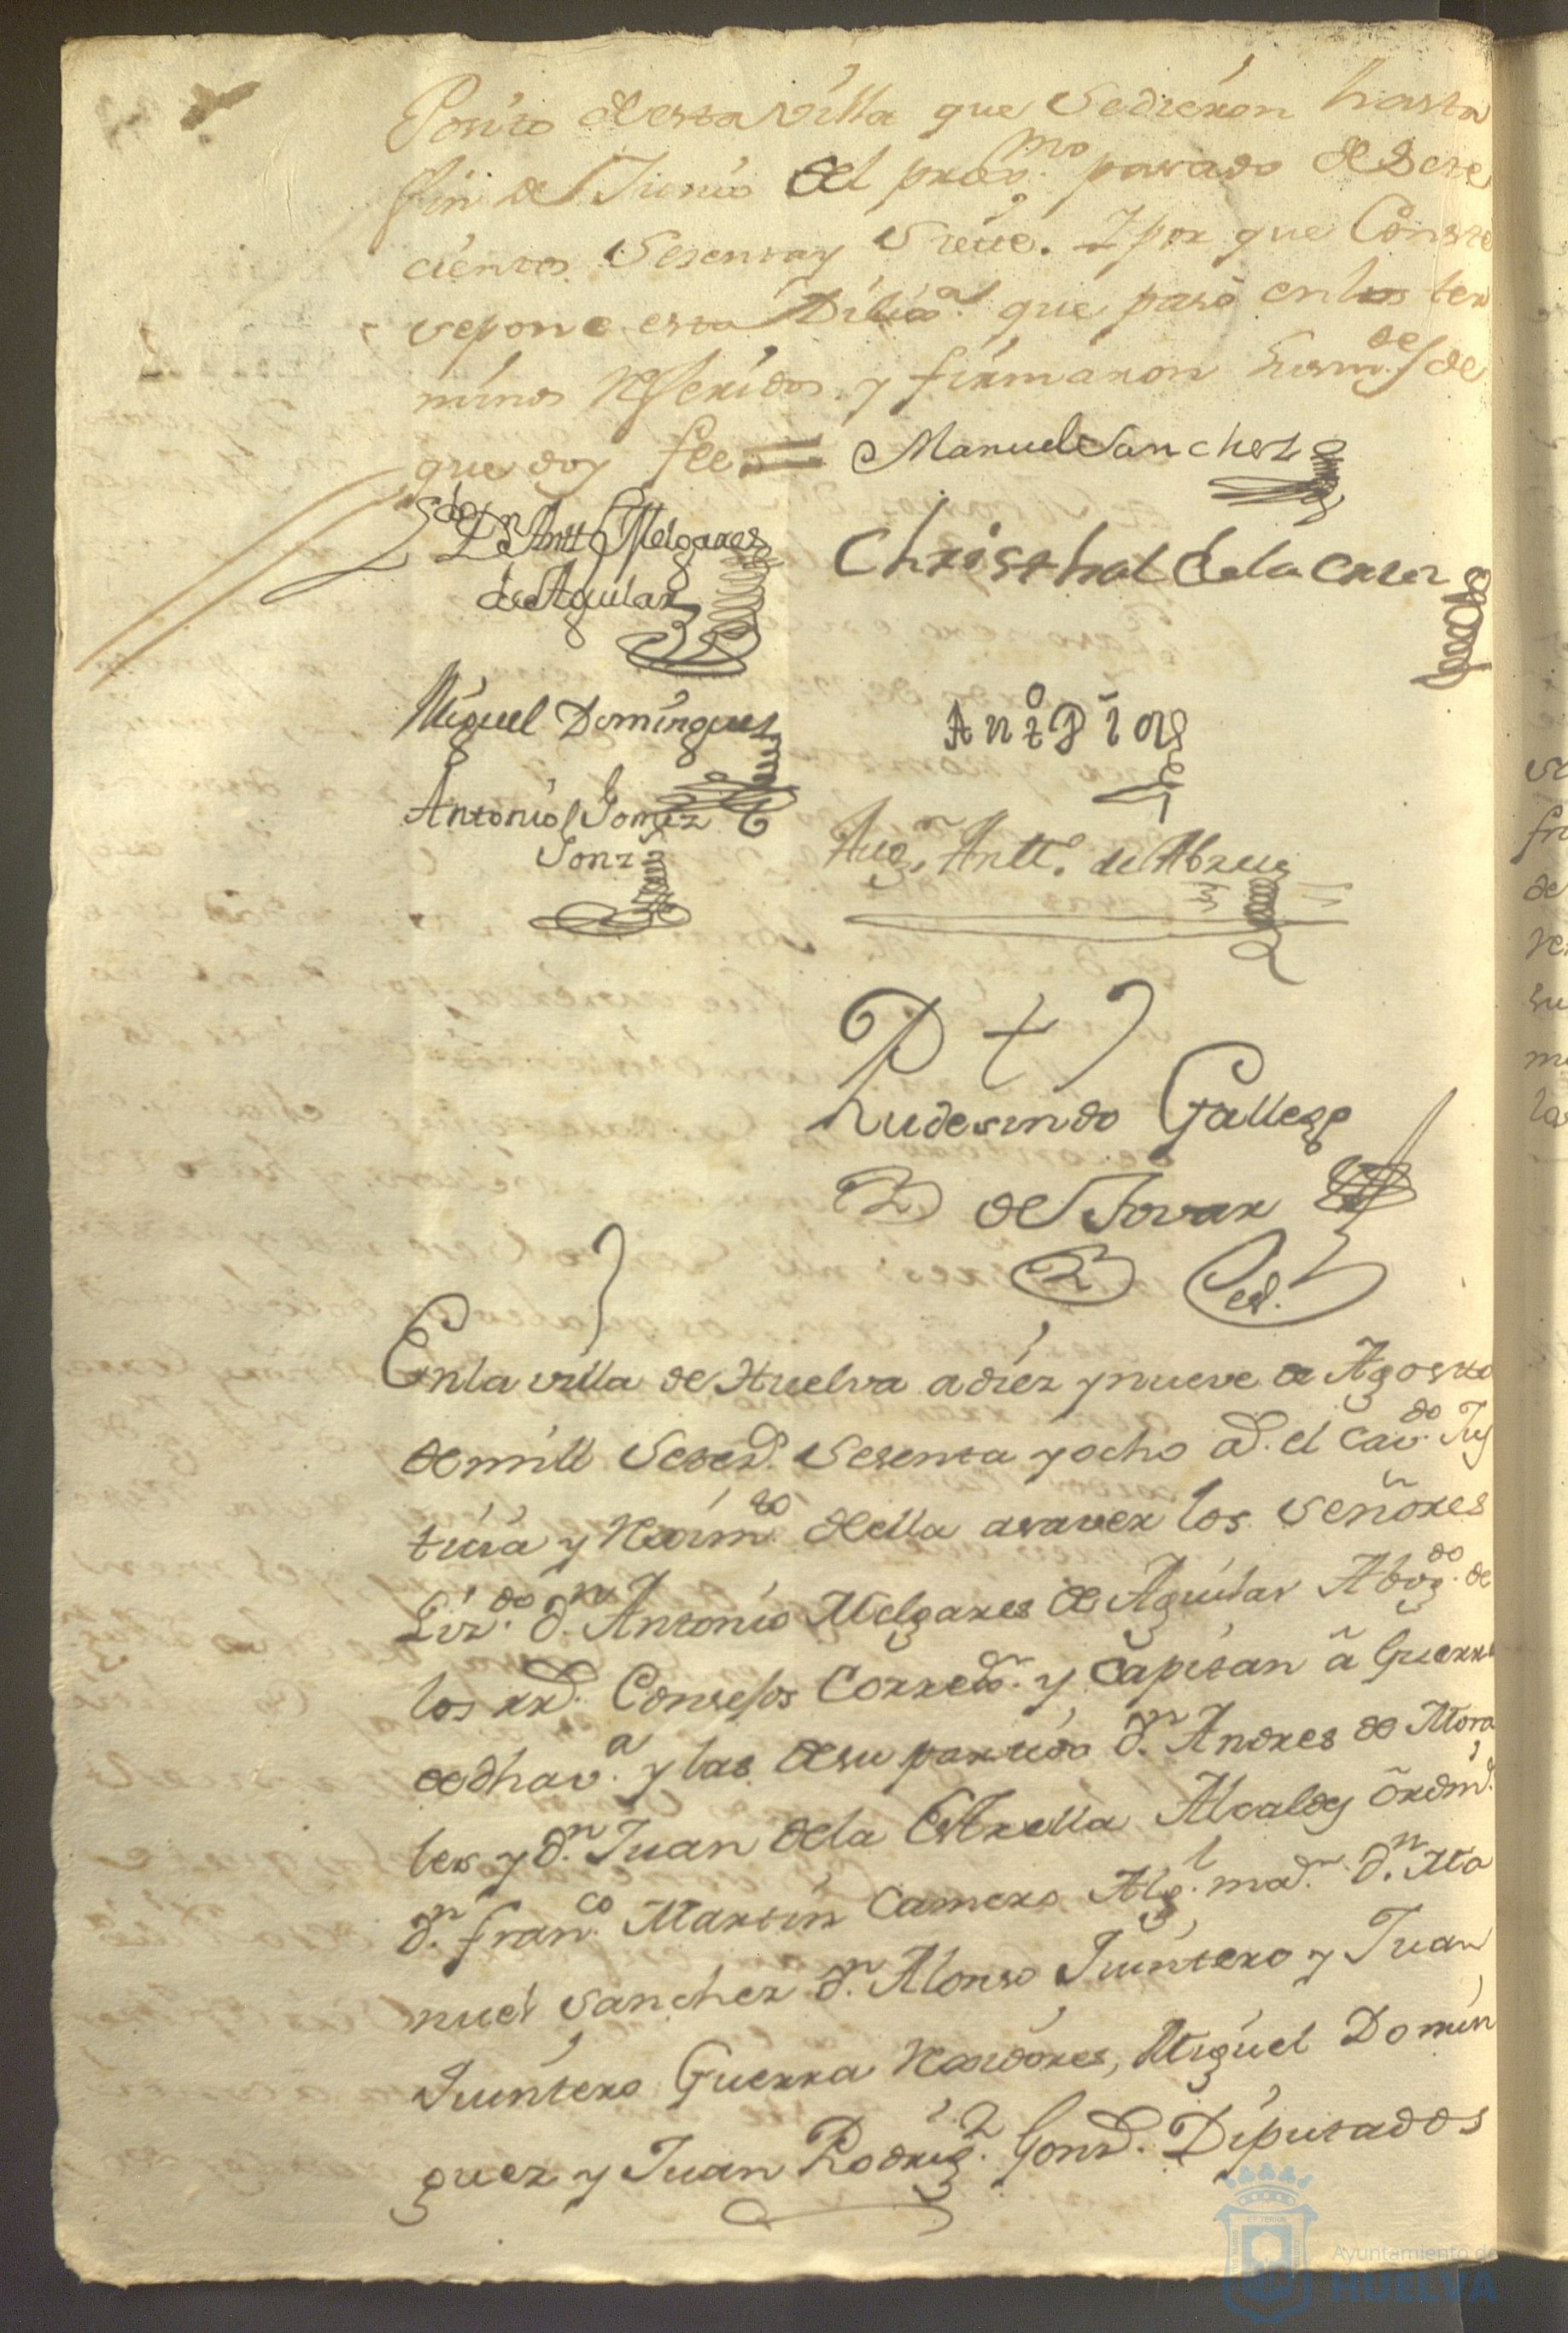 Posito desta Villa que Sedieron hasta
fin de Junio del prox.mo pasado de Sete
cientos Sesenta y Siete. Y por que Conste
sepone esta Dilix.a que pasó en los ter
minos referidos, y firmaron Susm.des de
que doy fee =
Manuel Sanchez
Ldo. Dn. Antt.o Melgares
de Aguilar
Christhal de la Corte
Miguel Dominguez
Ant.o Dias
Antonio Gomez
Gonz
Aug.n Antt.o de Abreu
Rudesindo Gallego
de Tovar
Es.
En la villa de Huelva a diez y nueve de Agosto
de mill Setez.s Sesenta y ocho a.s el Cav.do Jus
ticia y Rexim.to della asaver los Señores
Liz.do d.n Antonio Melgares de Aguilar Abog.do de
los rr.s Consejos Corred.r y Capitan â Guerra
de dha v.a y las de su partido d.n Andres de Mora
les y d.n Juan de la Estrella Alcaldes ordin.s
d.n Fran.co Martin Camero Alg.l ma.r d.n Ma
nuel Sanchez d.n Alonso Quintero y Juan
Quintero Guerra Rexidores, Miguel Domin
guez y Juan Rodrig.z Gonz.s Diputados
Ayuntamiento de
HUELVA